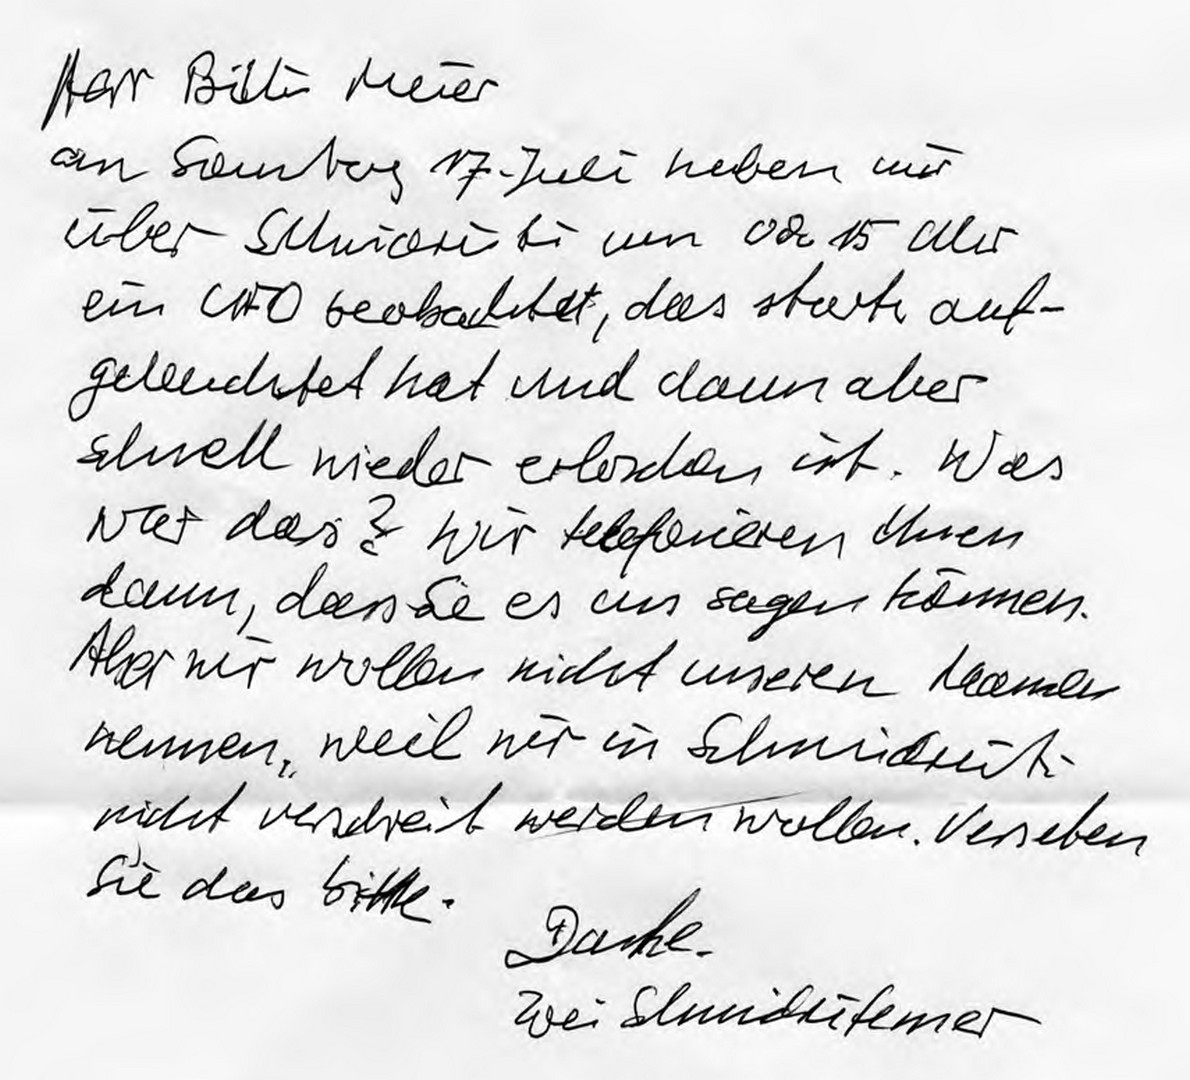 Herr Billi Meier
an Samstag 17. Juli haben wir
über Schmidrüti um 02.15 Uhr
ein UFO beobachtet, das stark auf-
geleuchtet hat und dann aber
schnell wieder erloschen ist. Was
war das? Wir telefonieren Ihnen
dann, dass Sie es uns sagen können.
Aber wir wollen nicht unseren Namen
nennen, weil wir in Schmidrüti
nicht verschreit werden wollen. Versehen
Sie das bitte.
Danke.
Zwei Schmidrütemer